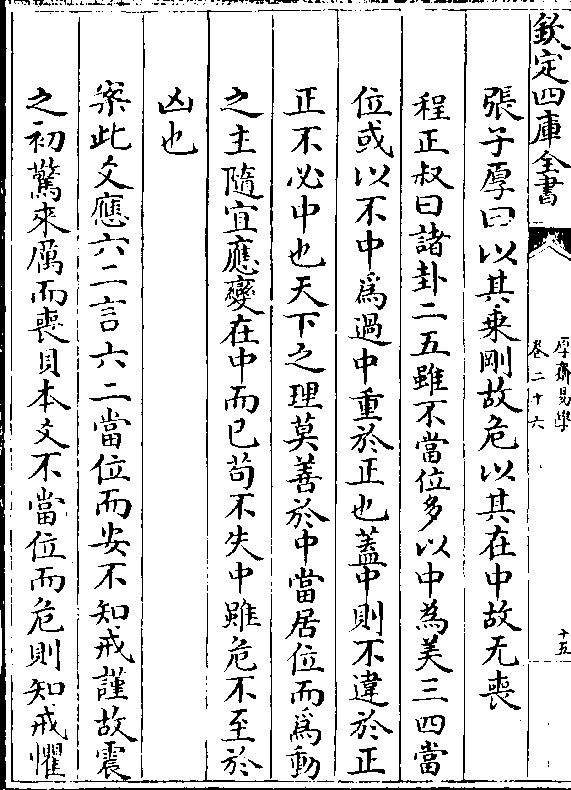 欽定四庫全書
厚齋易學
卷二十六
十五
張子厚曰以其乗剛故危以其在中故无喪
程正叔曰諸卦二五雖不當位多以中為美三四當
位或以不中爲過中重於正也蓋中則不違於正
正不必中也天下之理莫善於中當居位而爲動
之主隨宜應變在中而已苟不失中雖危不至於
凶也
案此爻應六二言六二當位而安不知戒謹故震
之初驚來厲而喪貝本爻不當位而危則知戒懼